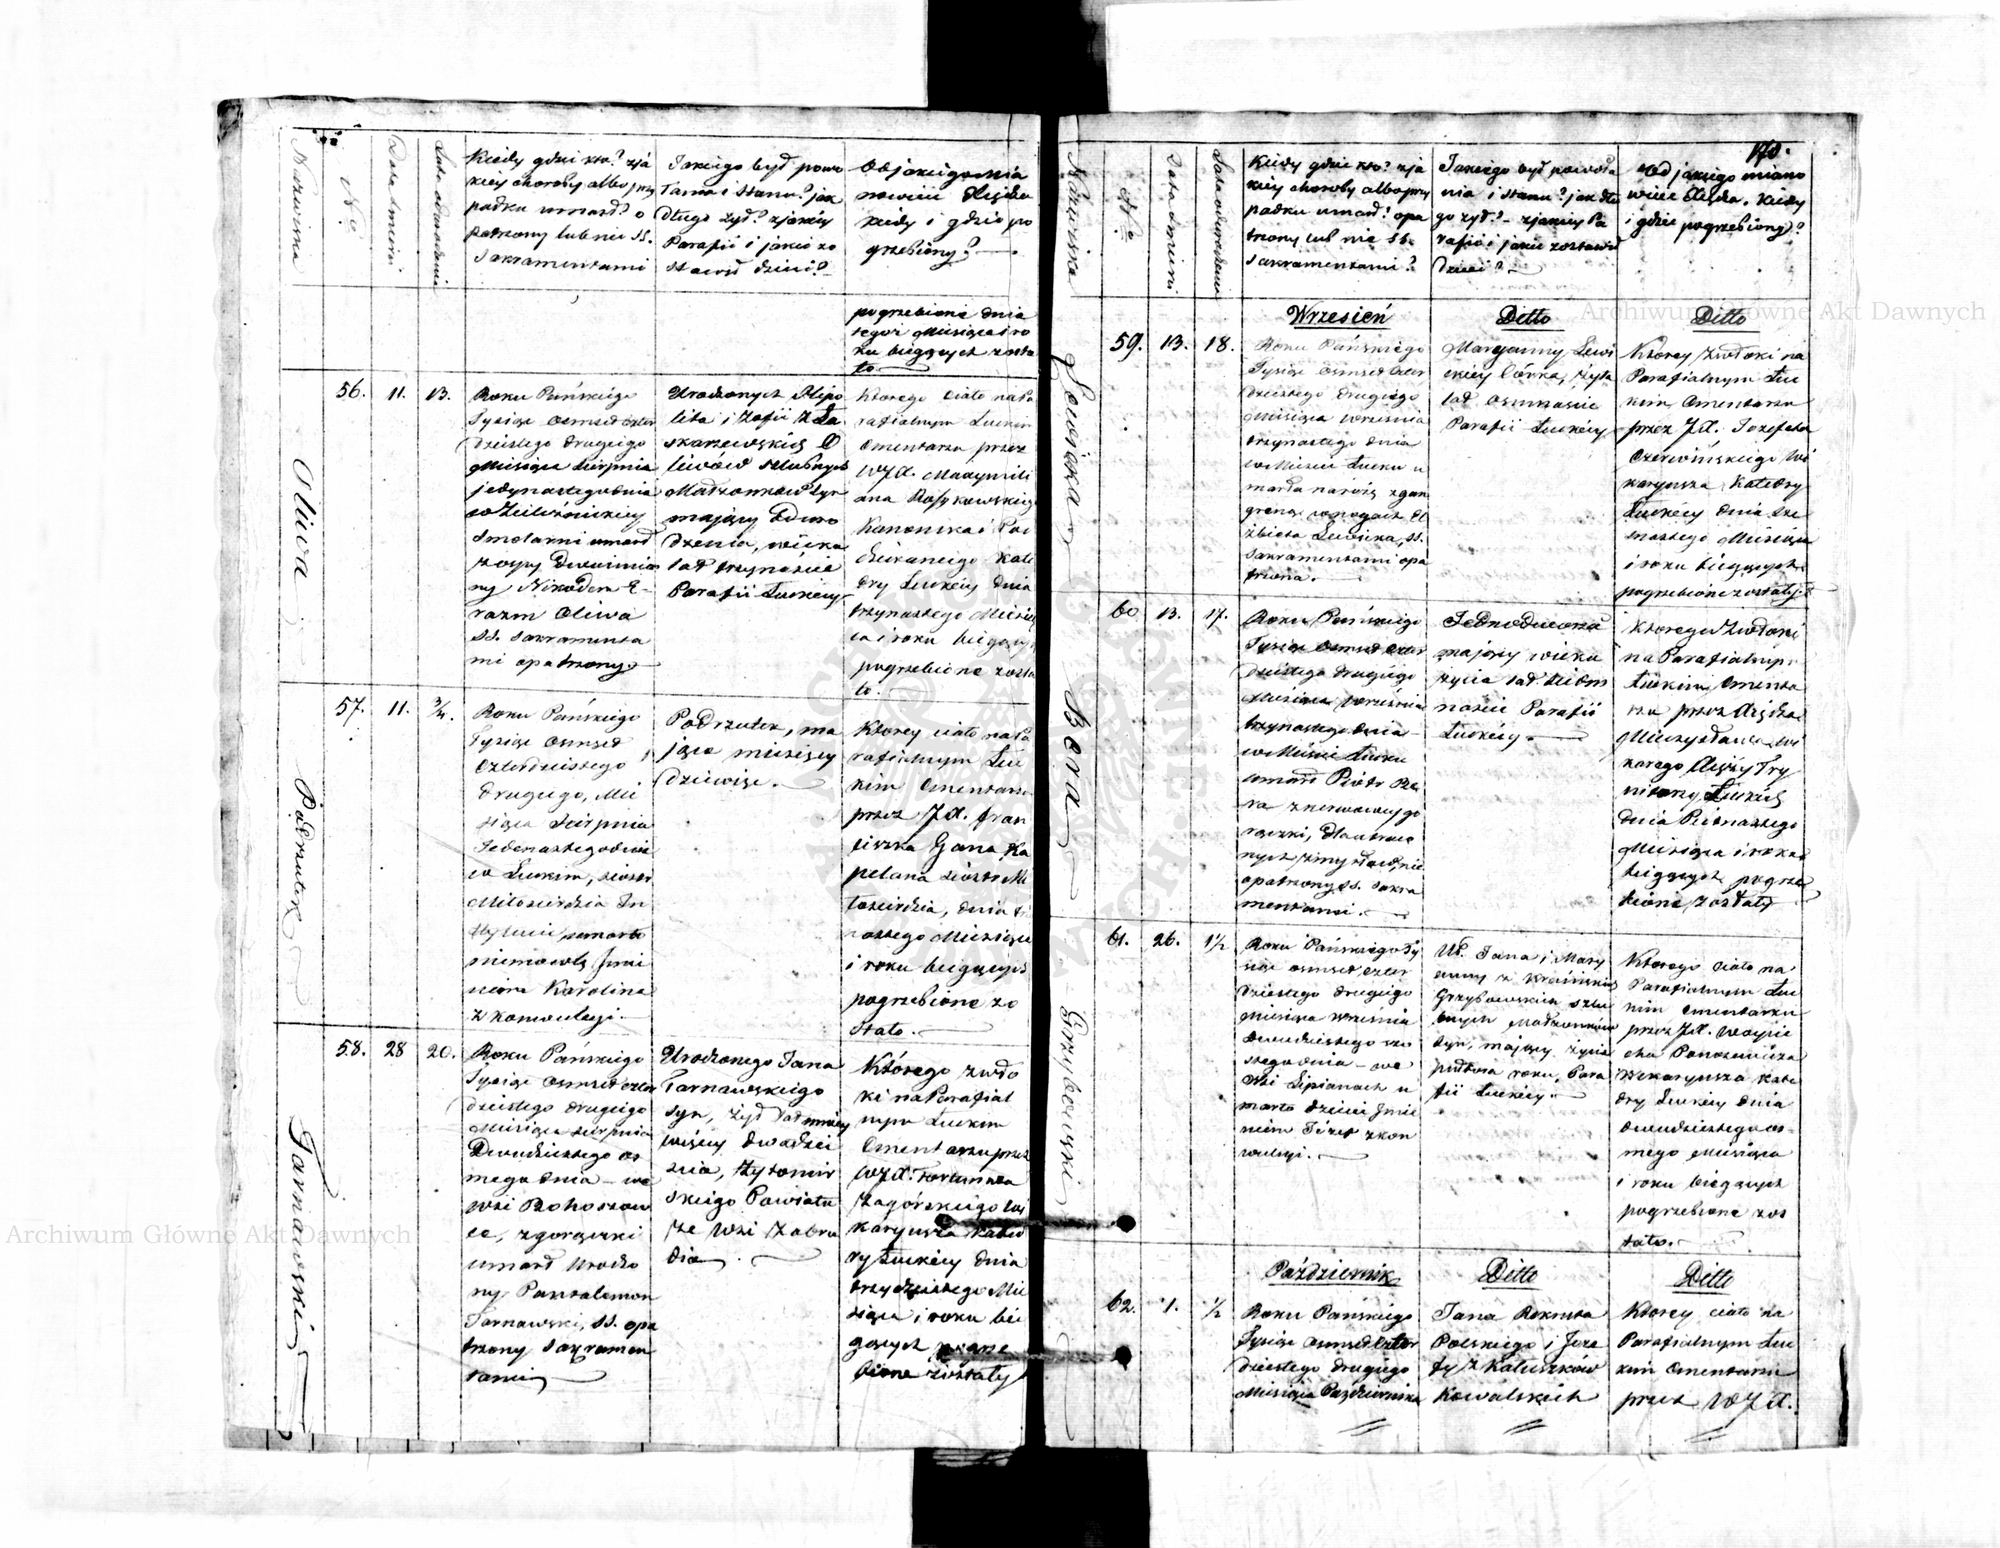 Nazwiska
No
Data śmierci
Lata urodzenia
Kiedy gdzie kto? z ja
kiey choroby albo przy
padku umarł? o
patrzony lub nie SS.
Sakramentami
Jakiego był powo
łania i stanu? jak
długo żył? z jakiéy
Parafii i jakie zo
stawił dzieci?
Od jakiego mia
nowicie Xiędza
kiedy i gdzie po
grzebiony?
pogrzebione dnia
tegoż Miesiąca i ro
ku bieżących zosta
ło.
Oliwa
56. 11. 13.
Roku Pańskiego
Tysiąc Osmset czter
dziestego drugiego
Miesiąca Sierpnia
jedynastego dnia
Smolarni umarł
ny Nikodem E-
razm Oliwa
SS. Sakramenta
mi opatrzony
Urodzonych Hipo
lita i Zofii z Ła
skarzewskich O
liwów szlubnych
Małżonków Syn
mający
dzenia, wieku
lat trzynaście
Parafii Łuckiéy
Którego ciało na Pa
rafialnym Łuckim
Cmentarzu przez
WJX. Maxymili
ana
Kanonika i
Kate
dry Łuckiéy dnia
trzynastego Miesią
ca i roku bieżących
pogrzebione zosta
ło.
Podrzutek
57. 11. 3/4.
Roku Pańskiego
Tysiąc Osmset
Czterdziestego
drugiego, Mie
siąca Sierpnia
Jedenastego dnia
w Łuckim, sióstr
Miłosierdzia In
stytucie, umarło
niemowlę Jmie
niem Karolina
z konwulsyi.
Podrzutek, ma
jąca miesięcy
dziewięć.
Któréy ciało na Pa
rafialnym Łuc
kim Cmentarzu
przez JX. Fran
ciszka Gana Ka
pelana Sióstr Mi
łosierdzia, dnia
nastego Miesiąca
i roku bieżących
pogrzebione zo
stało.
Tarnawski
58. 28 20.
Roku Pańskiego
Tysiąc Osmset czter
dziestego drugiego
Miesiąca Sierpnia
Dwudziestego os
mego dnia we
wsi Rohoszow
ce, z gorączki
umarł Urodzo
ny Pantaleon
Tarnawski, SS. opa
trzony Sakramen
tami
Urodzonego Jana
Tarnawskiego
syn, żył lat mniéy
więcéy dwadzie
ścia, Żytomir
skiego Powiatu
ze wsi Zabru
dia
Którego zwło
ki na Parafial
nym Łuckim
Cmentarzu przez
WJX. Fortunata
Zagórskiego Wi
karyusza Kated
ry Łuckiéy dnia
trzydziestego Mie
siąca i roku bie
żących pogrze
bione zostały
170.
Nazwiska
No
Data śmierci
Lata urodzenia
Kiedy gdzie kto? z ja
kiey choroby albo przy
padku umarł? opa
trzony lub nie SS.
Sakramentami?
Jakiego był powoła
nia i stanu? jak dłu
go żył? z jakiey Pa
rafii i jakie zostawił
dzieci?
Od jakiego miano
wicie Xiędza, kiedy
i gdzie pogrzebiony?
Wrzesień
Ditto
Ditto
Lewicka
59. 13. 18.
Roku Pańskiego
Tysiąc Osmset czter
dziestego drugiego
Miesiąca września
trzynastego dnia
w Mieście Łucku u
marła na różę z gan
greną w nogach El
żbieta Lewicka, SS.
Sakramentami opa
trzona.
Maryanny Lewi
ckiéy Córka, żyła
lat osmnaście
Parafii Łuckiéy
Któréy zwłoki na
Parafialnym Łuc
kim Cmentarzu
przez JX. Jozefata
Czerwińskiego Wi
karyusza Katedry
Łuckiéy dnia sze
snastego Miesiąca
i roku bieżących
pogrzebione zostały.
Bera
60 13. 17.
Roku Pańskiego
Tysiąc Osmset czter
dziestego drugiego
Miesiąca Września
trzynastego dnia
w Mieście Łucku
umarł Piotr Be
ra z nerwowéy go
rączki, dla utraco
nych zmysłów, nie
opatrzony SS. Sakra
mentami.
Jednodworca
mający wieku
życia lat siedm
naście Parafii
Łuckiéy.
Którego zwłoki
na Parafialnym
Łuckim Cmenta
rzu przez Xiędza
Mieczysława Wi
karego Xięży Try
nitarzy Łuckich
dnia Piętnastego
Miesiąca i roku
bieżących pogrze
bione zostały
Grzybowski
61. 26. 1½
Roku Pańskiego Ty
siąc osmset czter
dziestego drugiego
Miesiąca Września
dwudziestego szó
stego dnia we
wsi Lipianach u
marło dziecie Jmie
niem Józef z kon
wulsyi.
Ur. Jana i Mary
anny z
Grzybowskich szlu
bnych Małżonków
syn, mający życia
półtora roku, Para
fii Łuckiéy.
Którego ciało na
Parafialnym Łuc
kim Cmentarzu
przez JX. Woycie
cha Panasewicza
Wikaryusza Kate
dry Łuckiéy dnia
dwudziestego os
mego Miesiąca
i roku bieżących
pogrzebione zos
tało.
Październik
Ditto
Ditto
62. 1. ½
Roku Pańskiego
Tysiąc Osmset czter
dziestego drugiego
Miesiąca Października
Jana Rekruta
Polskiego i Joze
fy z Kaluszków
Kowalskich
Któréy ciało na
Parafialnym Łuc
kim Cmentarzu
przez WJX.
Archiwum Główne Akt Dawnych
Archiwum Główne Akt Dawnych